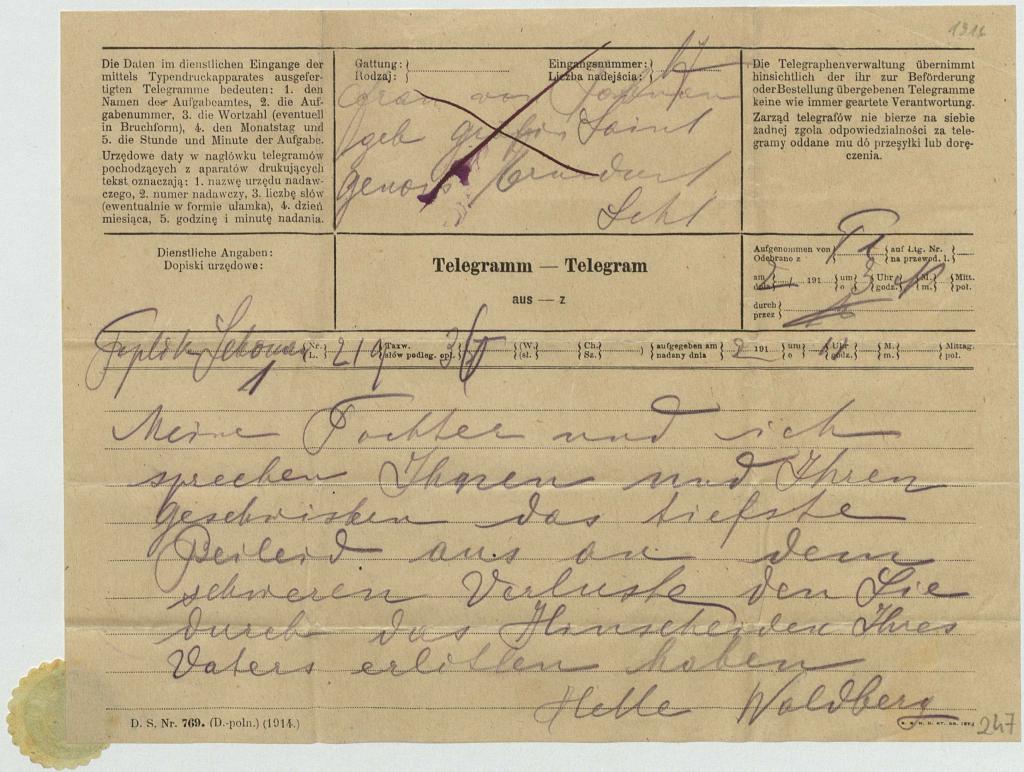 1916
Die Daten im dienstlichen Eingange der
mittels Typendruckapparates ausgefer-
tigten Telegramme bedeuten: 1. den
Namen des Aufgabeamtes, 2. die Auf-
gabenummer, 3. die Wortzahl (eventuell
in Bruchform), 4. den Monatstag und
5. die Stunde und Minute der Aufgabe.
Urzędowe daty w nagłówku telegramów
pochodzących z aparatów drukujących
tekst oznaczają: 1. nazwę urzędu nadaw-
czego, 2. numer nadawczy, 3. liczbę słów
(ewentualnie w formie ułamka), 4. dzień
miesiąca, 5. godzinę i minutę nadania.
Gattung:
Rodzaj:
Eingangsnummer:
Liczba nadejścia:
von
geb
Saint
genois
Schl
Die Telegraphenverwaltung übernimmt
hinsichtlich der ihr zur Beförderung
oder Bestellung übergebenen Telegramme
keine wie immer geartete Verantwortung.
Zarząd telegrafów nie bierze na siebie
żadnej zgoła odpowiedzialności za tele-
gramy oddane mu do przesyłki lub dorę-
czenia.
Dienstliche Angaben:
Dopiski urzędowe:
Telegramm — Telegram
aus — z
Aufgenommen von
Odebrano z
auf Ltg. Nr.
na przewod. l.
am
dnia
191
um
o
Uhr
godz.
M.
m.
Mitt.
poł.
durch
przez
Teplitz Schönau 1
Nr.
L.
219
Taxw.
słów podleg. opł.
(W.
(sł.
Ch.
Sz.
)
aufgegeben am
nadany dnia
2
191
um
o
Uhr
godz.
M.
m.
Mittag.
poł.
Meine Tochter und ich
sprechen Ihnen und Ihren
Geschwistern das tiefste
Beileid aus an dem
schweren Verluste den Sie
durch das Hinscheiden Ihres
Vaters erlitten haben
Helle Waldberg
D. S. Nr. 769. (D.-poln.) (1914.)
247